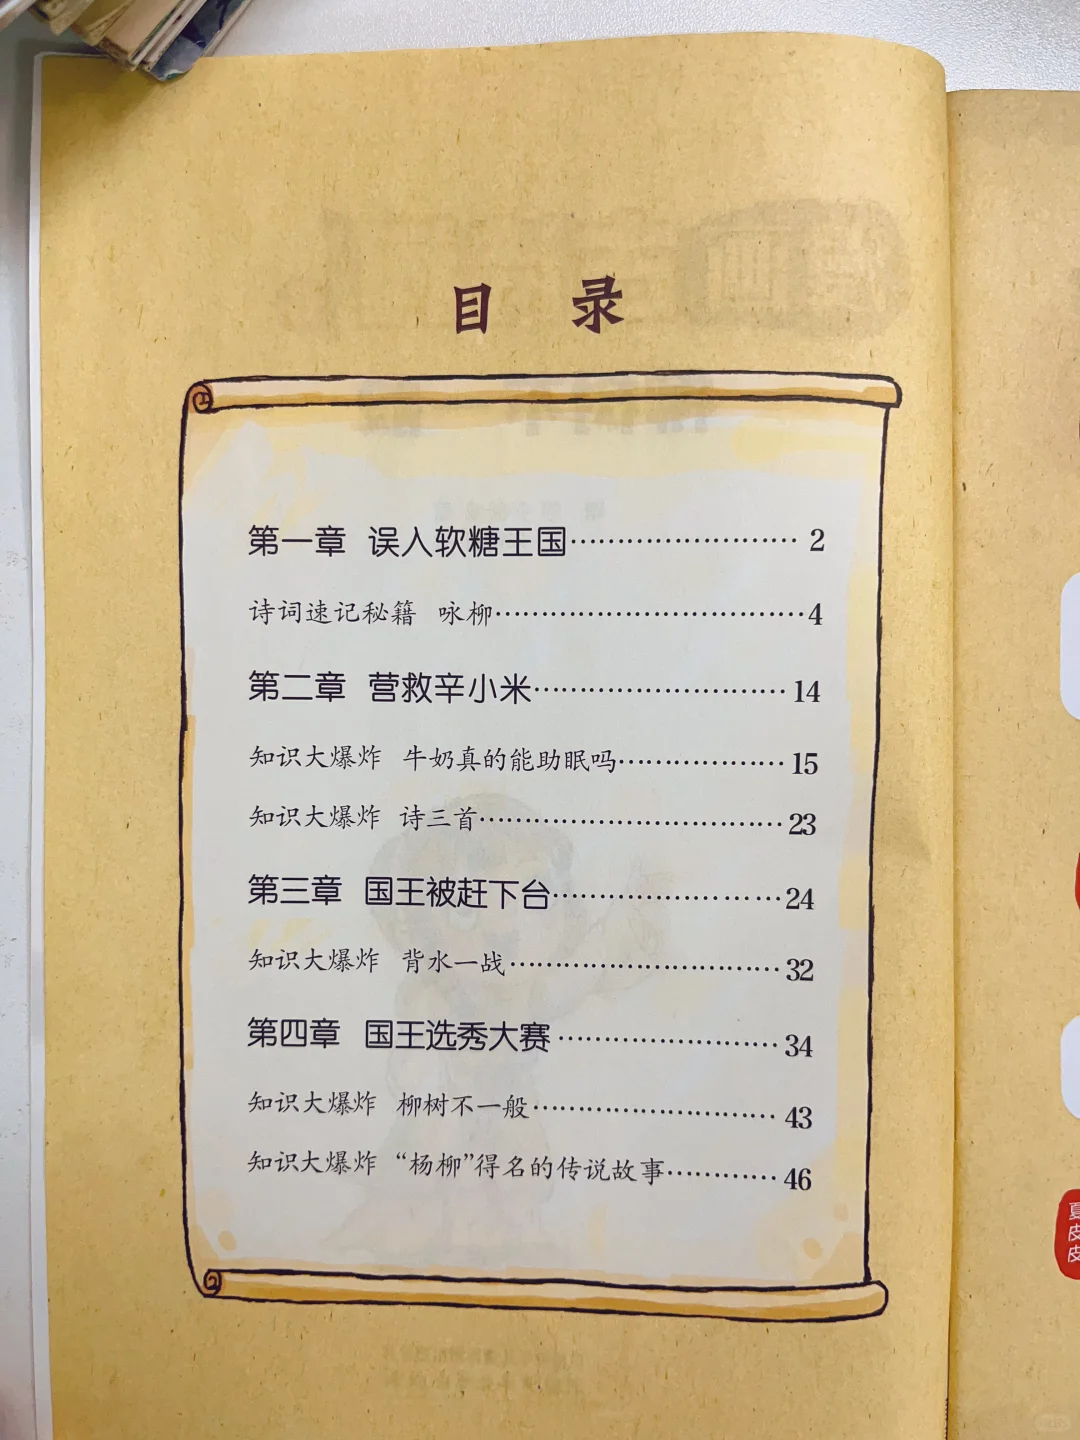 目 录
第一章 误入软糖王国……………………2
诗词速记秘籍 咏柳……………………………4
第二章 营救辛小米………………………14
知识大爆炸 牛奶真的能助眠吗………………15
知识大爆炸 诗三首……………………………23
第三章 国王被赶下台……………………24
知识大爆炸 背水一战…………………………32
第四章 国王选秀大赛……………………34
知识大爆炸 柳树不一般………………………43
知识大爆炸 “杨柳”得名的传说故事…………46
夏
皮
皮